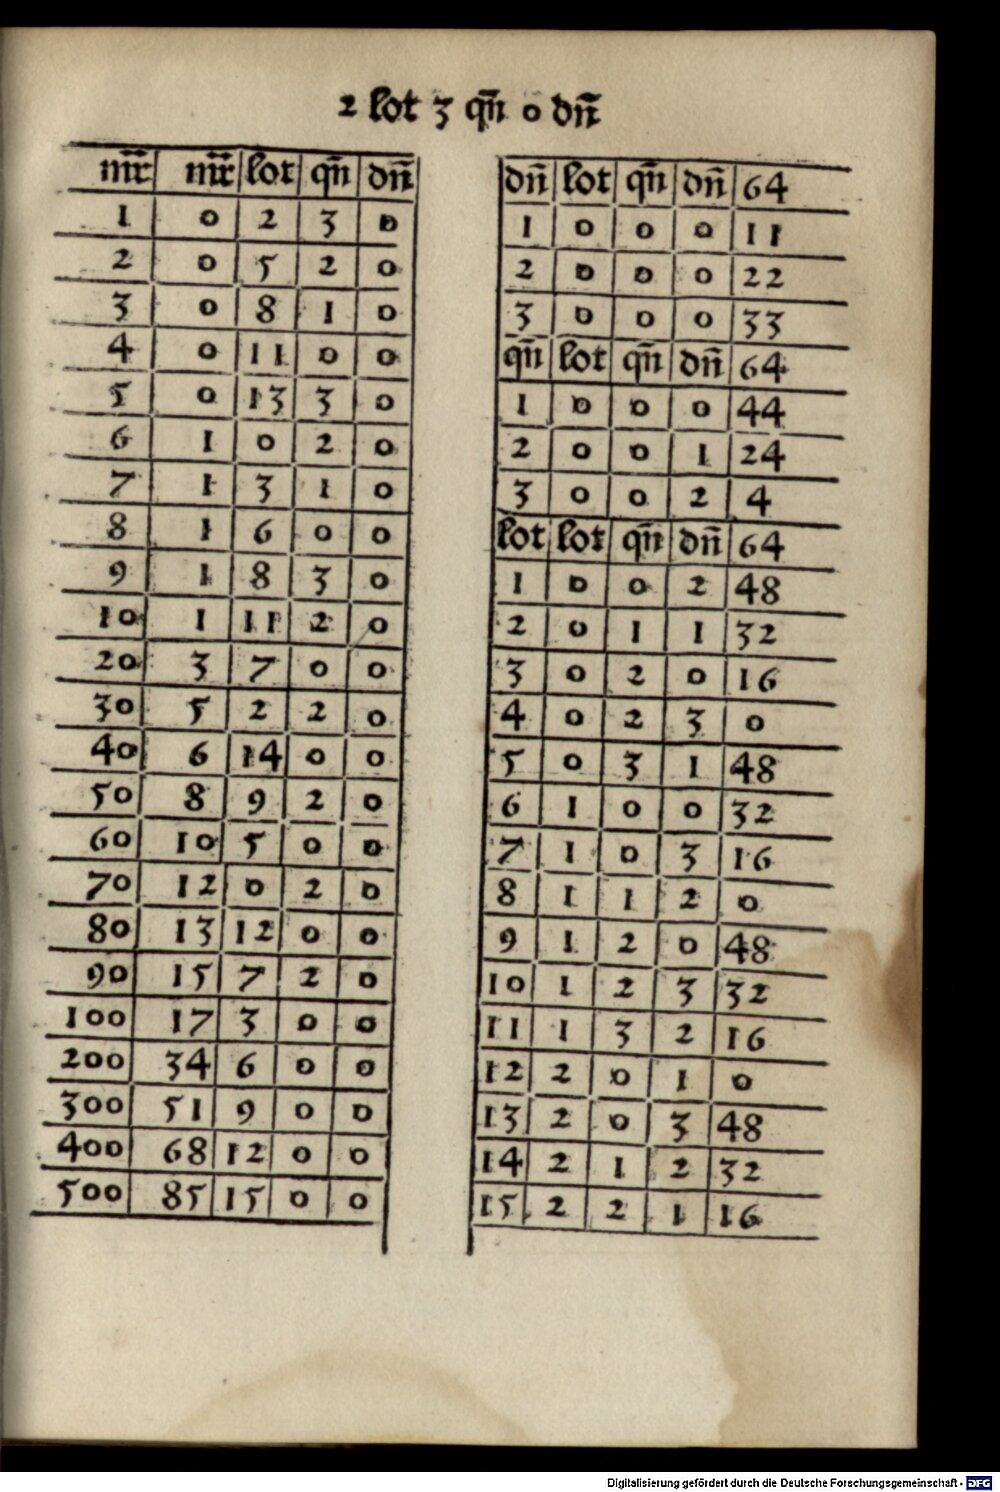 2 lot 3 qñ 0 dñ
mr̃ mr̃ lot qñ dñ
1 0 2 3 0
2 0 5 2 0
3 0 8 1 0
4 0 11 0 0
5 0 13 3 0
6 1 0 2 0
7 1 3 1 0
8 1 6 0 0
9 1 8 3 0
10 1 11 2 0
20 3 7 0 0
30 5 2 2 0
40 6 14 0 0
50 8 9 2 0
60 10 5 0 0
70 12 0 2 0
80 13 12 0 0
90 15 7 2 0
100 17 3 0 0
200 34 6 0 0
300 51 9 0 0
400 68 12 0 0
500 85 15 0 0
dñ lot qñ dñ 64
1 0 0 0 11
2 0 0 0 22
3 0 0 0 33
qñ lot qñ dñ 64
1 0 0 0 44
2 0 0 1 24
3 0 0 2 4
lot lot qñ dñ 64
1 0 0 2 48
2 0 1 1 32
3 0 2 0 16
4 0 2 3 0
5 0 3 1 48
6 1 0 0 32
7 1 0 3 16
8 1 1 2 0
9 1 2 0 48
10 1 2 3 32
11 1 3 2 16
12 2 0 1 0
13 2 0 3 48
14 2 1 2 32
15 2 2 1 16
Digitalisierung gefördert durch die Deutsche Forschungsgemeinschaft - DFG